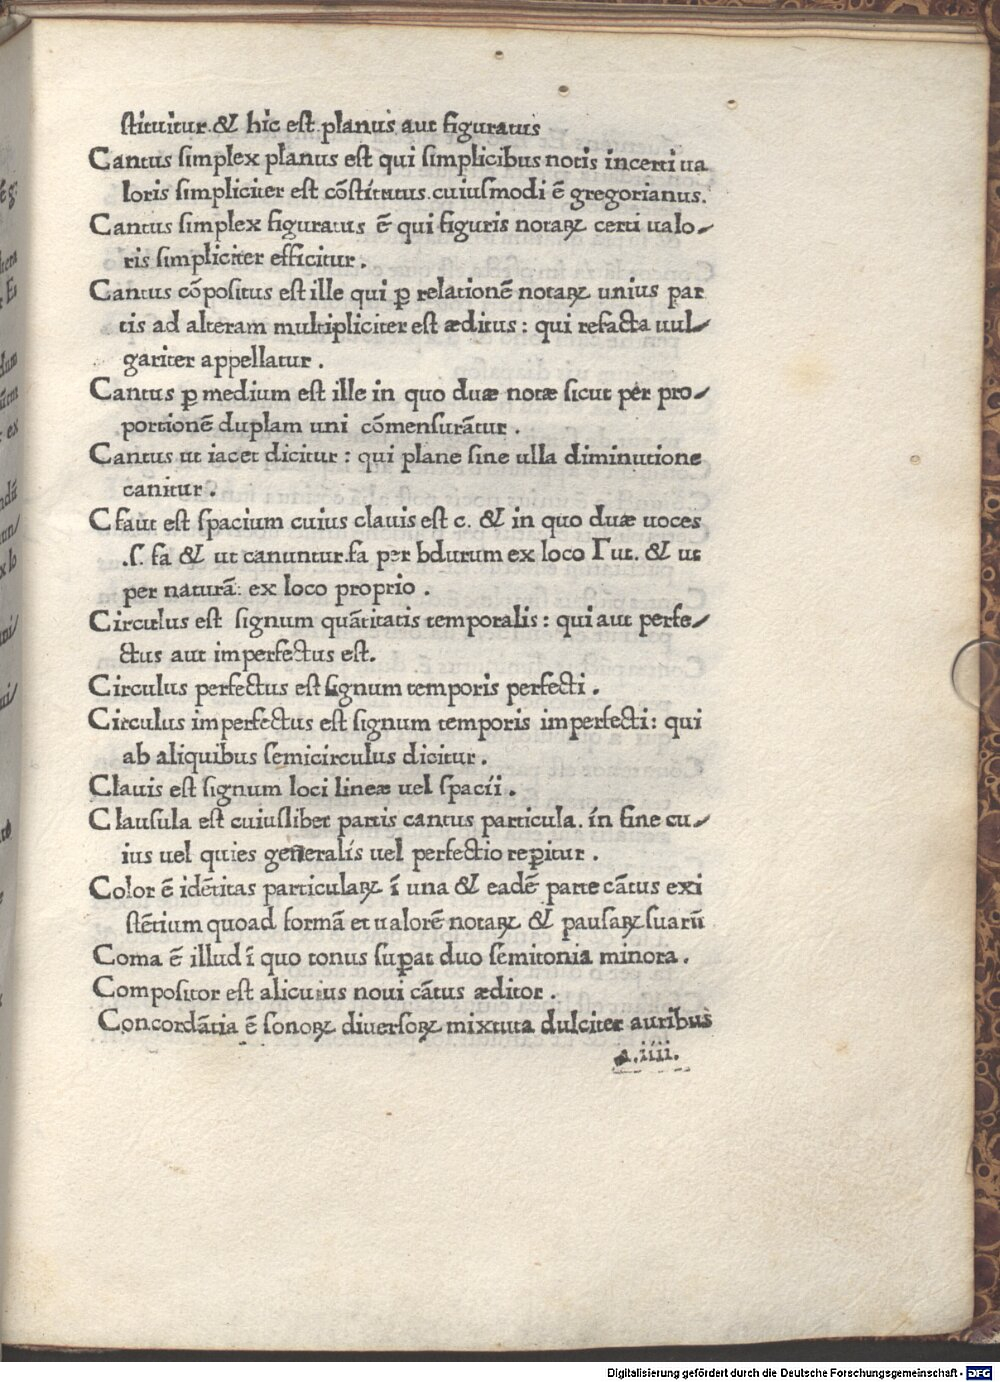 stituitur. & hic est planus aut figuratus
Cantus simplex planus est qui simplicibus notis incerti ua
loris simpliciter est cōstitutus. cuiusmodi ē gregorianus.
Cantus simplex figuratus ē qui figuris notaꝝ certi ualo-
ris simpliciter efficitur.
Cantus cōpositus est ille qui ꝑ relationē notaꝝ unius par
tis ad alteram multipliciter est æditus: qui refacta uul-
gariter appellatur.
Cantus ꝑ medium est ille in quo duæ notæ sicut per pro-
portionē duplam uni cōmensurātur.
Cantus ut iacet dicitur: qui plane sine ulla diminutione
canitur.
C faut est spacium cuius clauis est c. & in quo duæ uoces
.s. fa & ut canuntur. fa per bdurum ex loco Γ ut. & ut
per naturā: ex loco proprio.
Circulus est signum quātitatis temporalis: qui aut perfe-
ctus aut imperfectus est.
Circulus perfectus est signum temporis perfecti.
Circulus imperfectus est signum temporis imperfecti: qui
ab aliquibus semicirculus dicitur.
Clauis est signum loci lineæ uel spacii.
Clausula est cuiuslibet partis cantus particula. in fine cu-
ius uel quies generalis uel perfectio reꝑitur.
Color ē idētitas particulaꝝ ī una & eadē parte cātus exi
stētium quoad formā et ualorē notaꝝ & pausaꝝ suarū
Coma ē illud ī quo tonus suꝑat duo semitonia minora.
Compositor est alicuius noui cātus æditor.
Concordātia ē sonoꝝ diuersoꝝ mixtuta dulciter auribus
a.iiii.
Digitalisierung gefördert durch die Deutsche Forschungsgemeinschaft - DFG